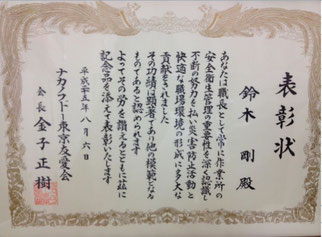 表彰状
鈴木 剛 殿
あなたは職長として常に作業所の
安全衛生管理の重要性を深く認識し
不断の努力を払い災害防止活動と
快適な職場環境の形成に多大な
貢献をされました
その功績は顕著であり他の模範になる
ものであると認められます
よってその労を讃えるとともに茲に
記念品を添えて表彰いたします
平成二十五年八月六日
ナカノフドー東京友愛会
会長 金子正樹